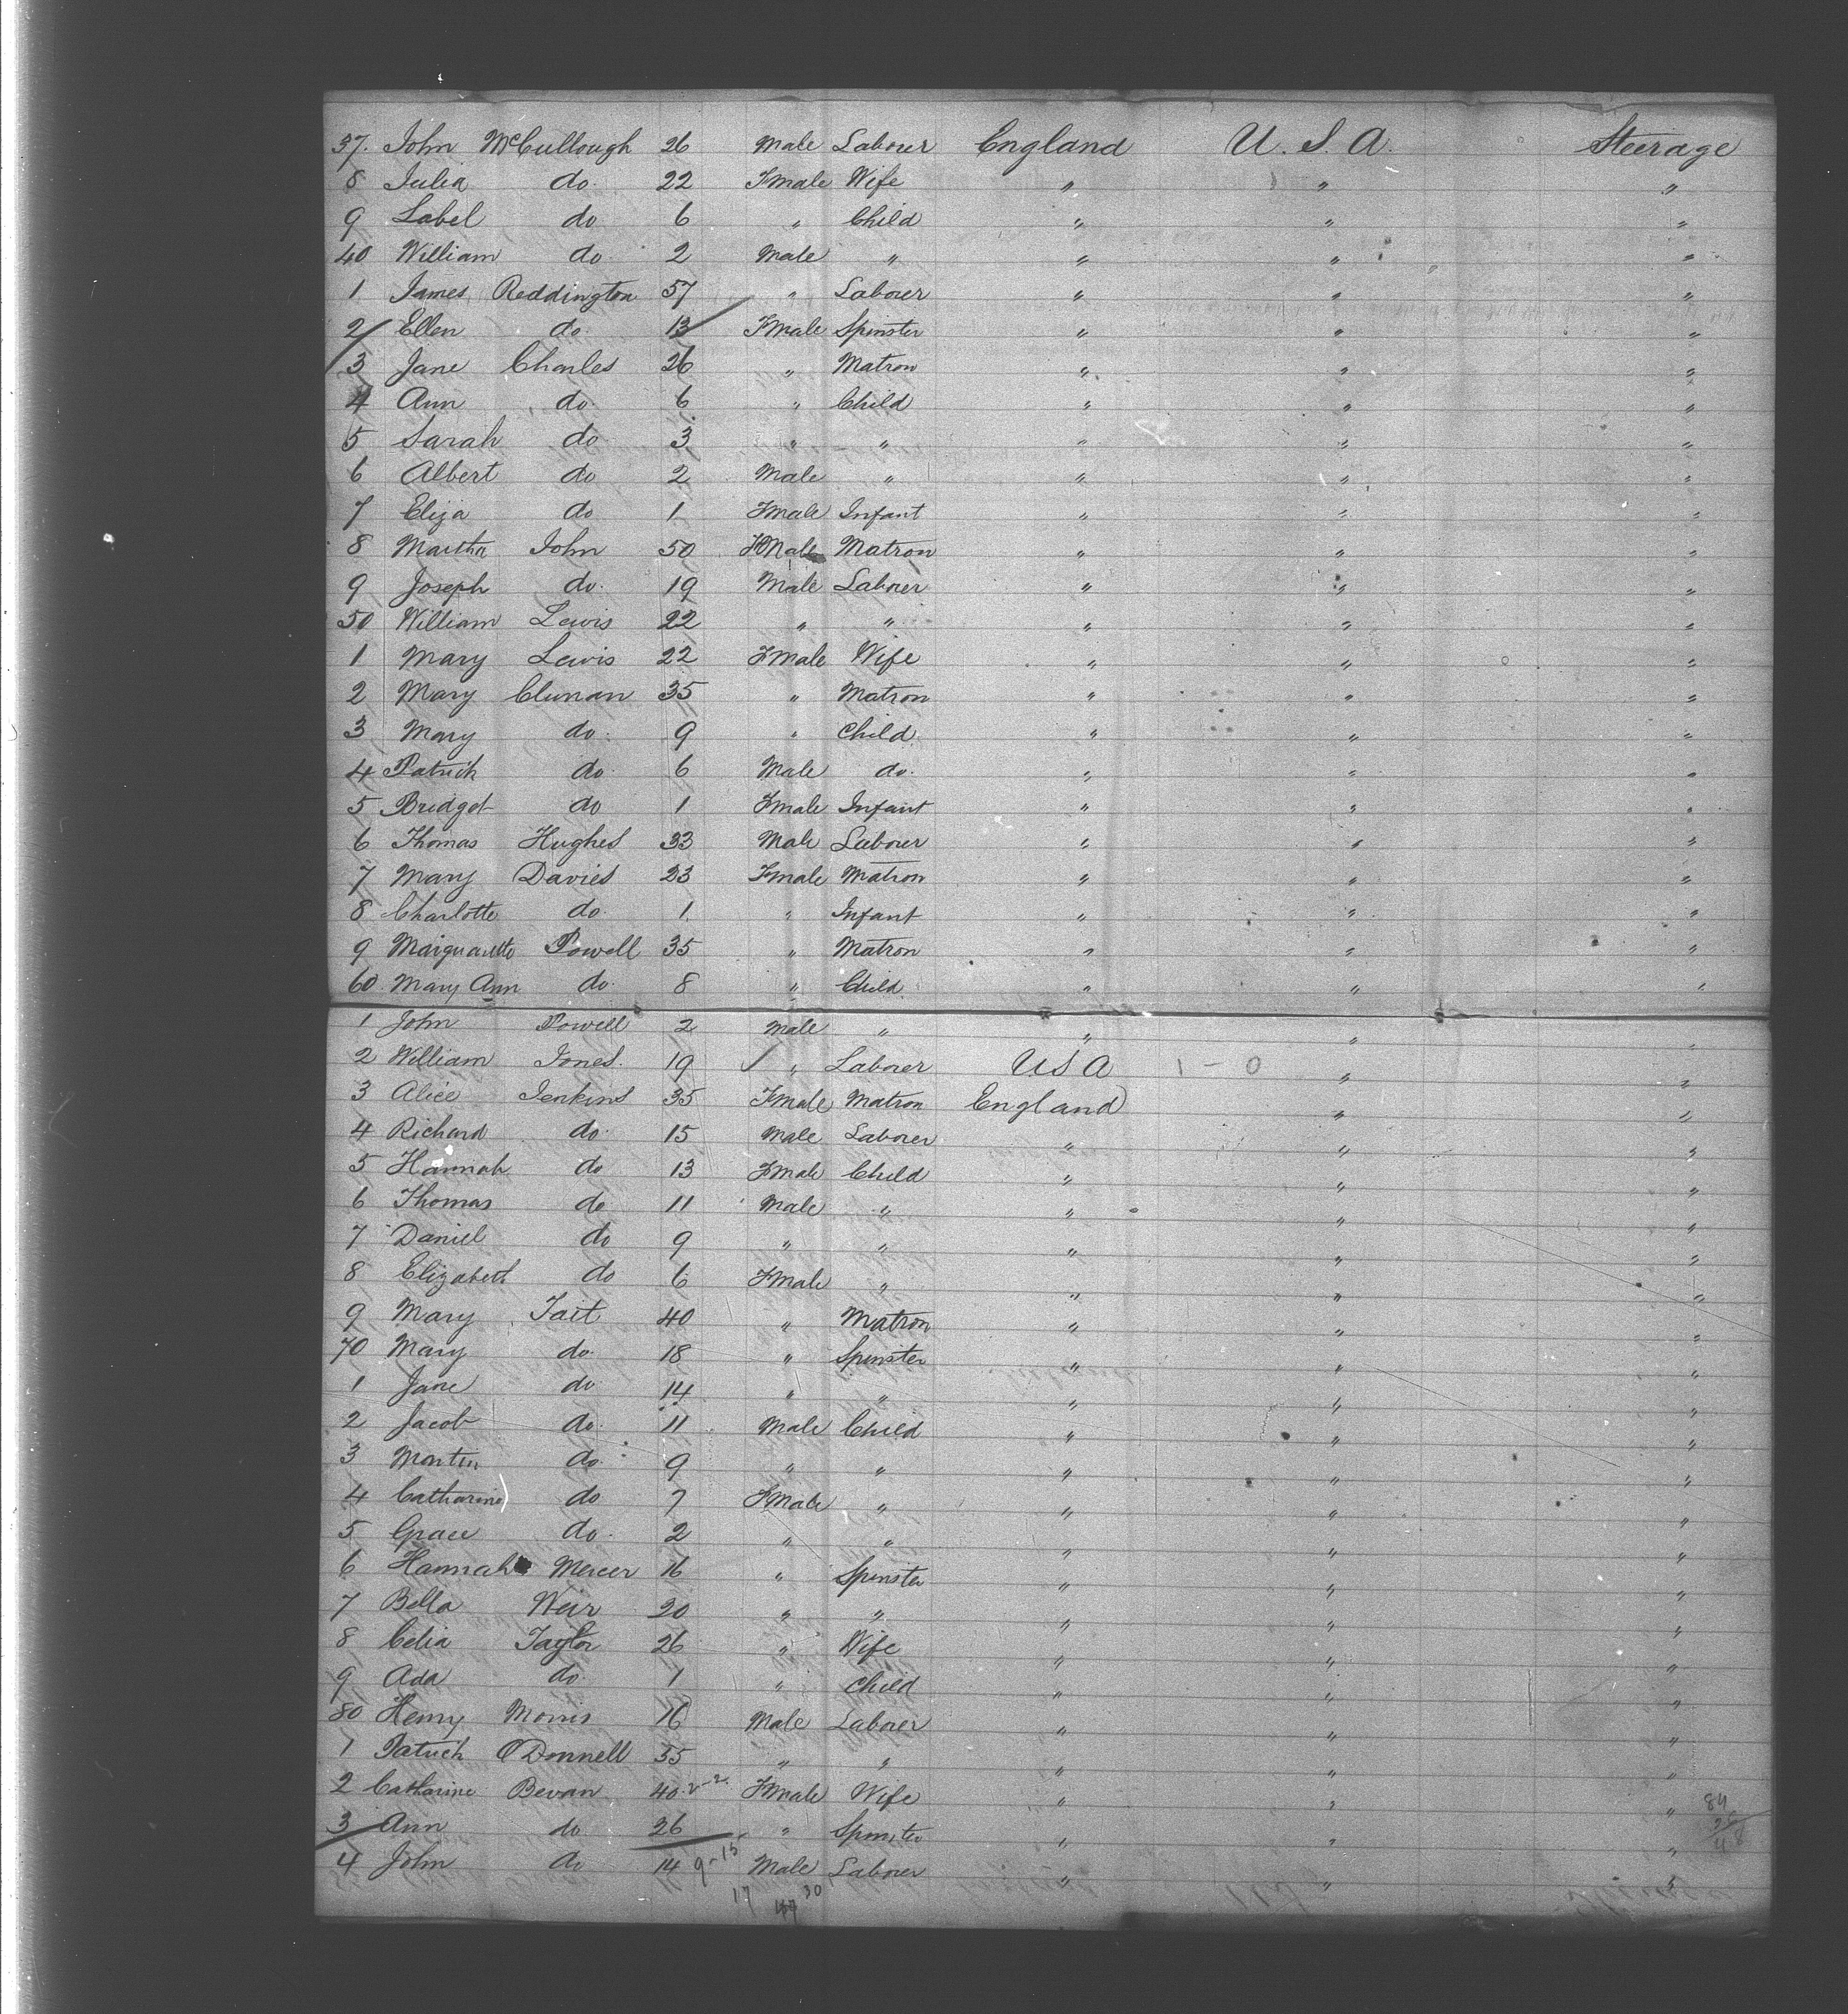 37. John McCullough 26 Male Labourer England U.S.A. Steerage
8 Julia do. 22 Fmale Wife " " "
9 Label do 6 " Child " " "
40 William do. 2 Male " " " "
1 James Reddington 57 " Laborer " " "
2 Ellen do. 13 Fmale Spinster " " "
3 Jane Charles 26 " Matron " " "
4 Ann do. 6 " Child " " "
5 Sarah do. 3 " " " " "
6 Albert do 2 Male " " " "
7 Eliza do 1 Fmale Infant " " "
8 Martha John 50 FMale Matron " " "
9 Joseph do. 19 Male Laborer " " "
50 William Lewis 22 " " " " "
1 Mary Lewis 22 Fmale Wife " " "
2 Mary Clunan 35 " Matron " " "
3 Mary do. 9 " Child " " "
4 Patrick do. 6 Male do. " " "
5 Bridget do 1 Fmale Infant " " "
6 Thomas Hughes 33 Male Laborer " " "
7 Mary Davies 23 Fmale Matron " " "
8 Charlotte do. 1 " Infant " " "
9 Powell 35 " Matron " " "
60 Mary Ann do. 8 " Child " " "
1 John Powell 2 Male " " " "
2 William Jones. 19 " Laborer USA 1-0 " "
3 Alice Jenkins 35 Fmale Matron England " "
4 Richard do. 15 Male Laborer " " "
5 Hannah do 13 Fmale Child " " "
6 Thomas do 11 Male " " " "
7 Daniel do 9 " " " " "
8 Elizabeth do 6 Fmale " " " "
9 Mary Tait 40 " Matron " " "
70 Mary do. 18 " Spinster " " "
1 Jane do 14 " " " " "
2 Jacob do. 11 Male Child " " "
3 Martin do. 9 " " " " "
4 Catharine do 7 Fmale " " " "
5 Grace do. 2 " " " " "
6 Hannah Mercer 16 " Spinster " " "
7 Bella Weir 20 " " " " "
8 Celia Taylor 26 " Wife " " "
9 Ada do. 1 " Child " " "
80 Henry Morris 16 Male Laborer " " "
1 Patrick O'Donnell 35 " " " " "
2 Catharine Bevan 40 2-2 Fmale Wife " " "
3 Ann do 26 " Spinster " " "
4 John do 14 9-15 Male Laborer " " "
17 47 30